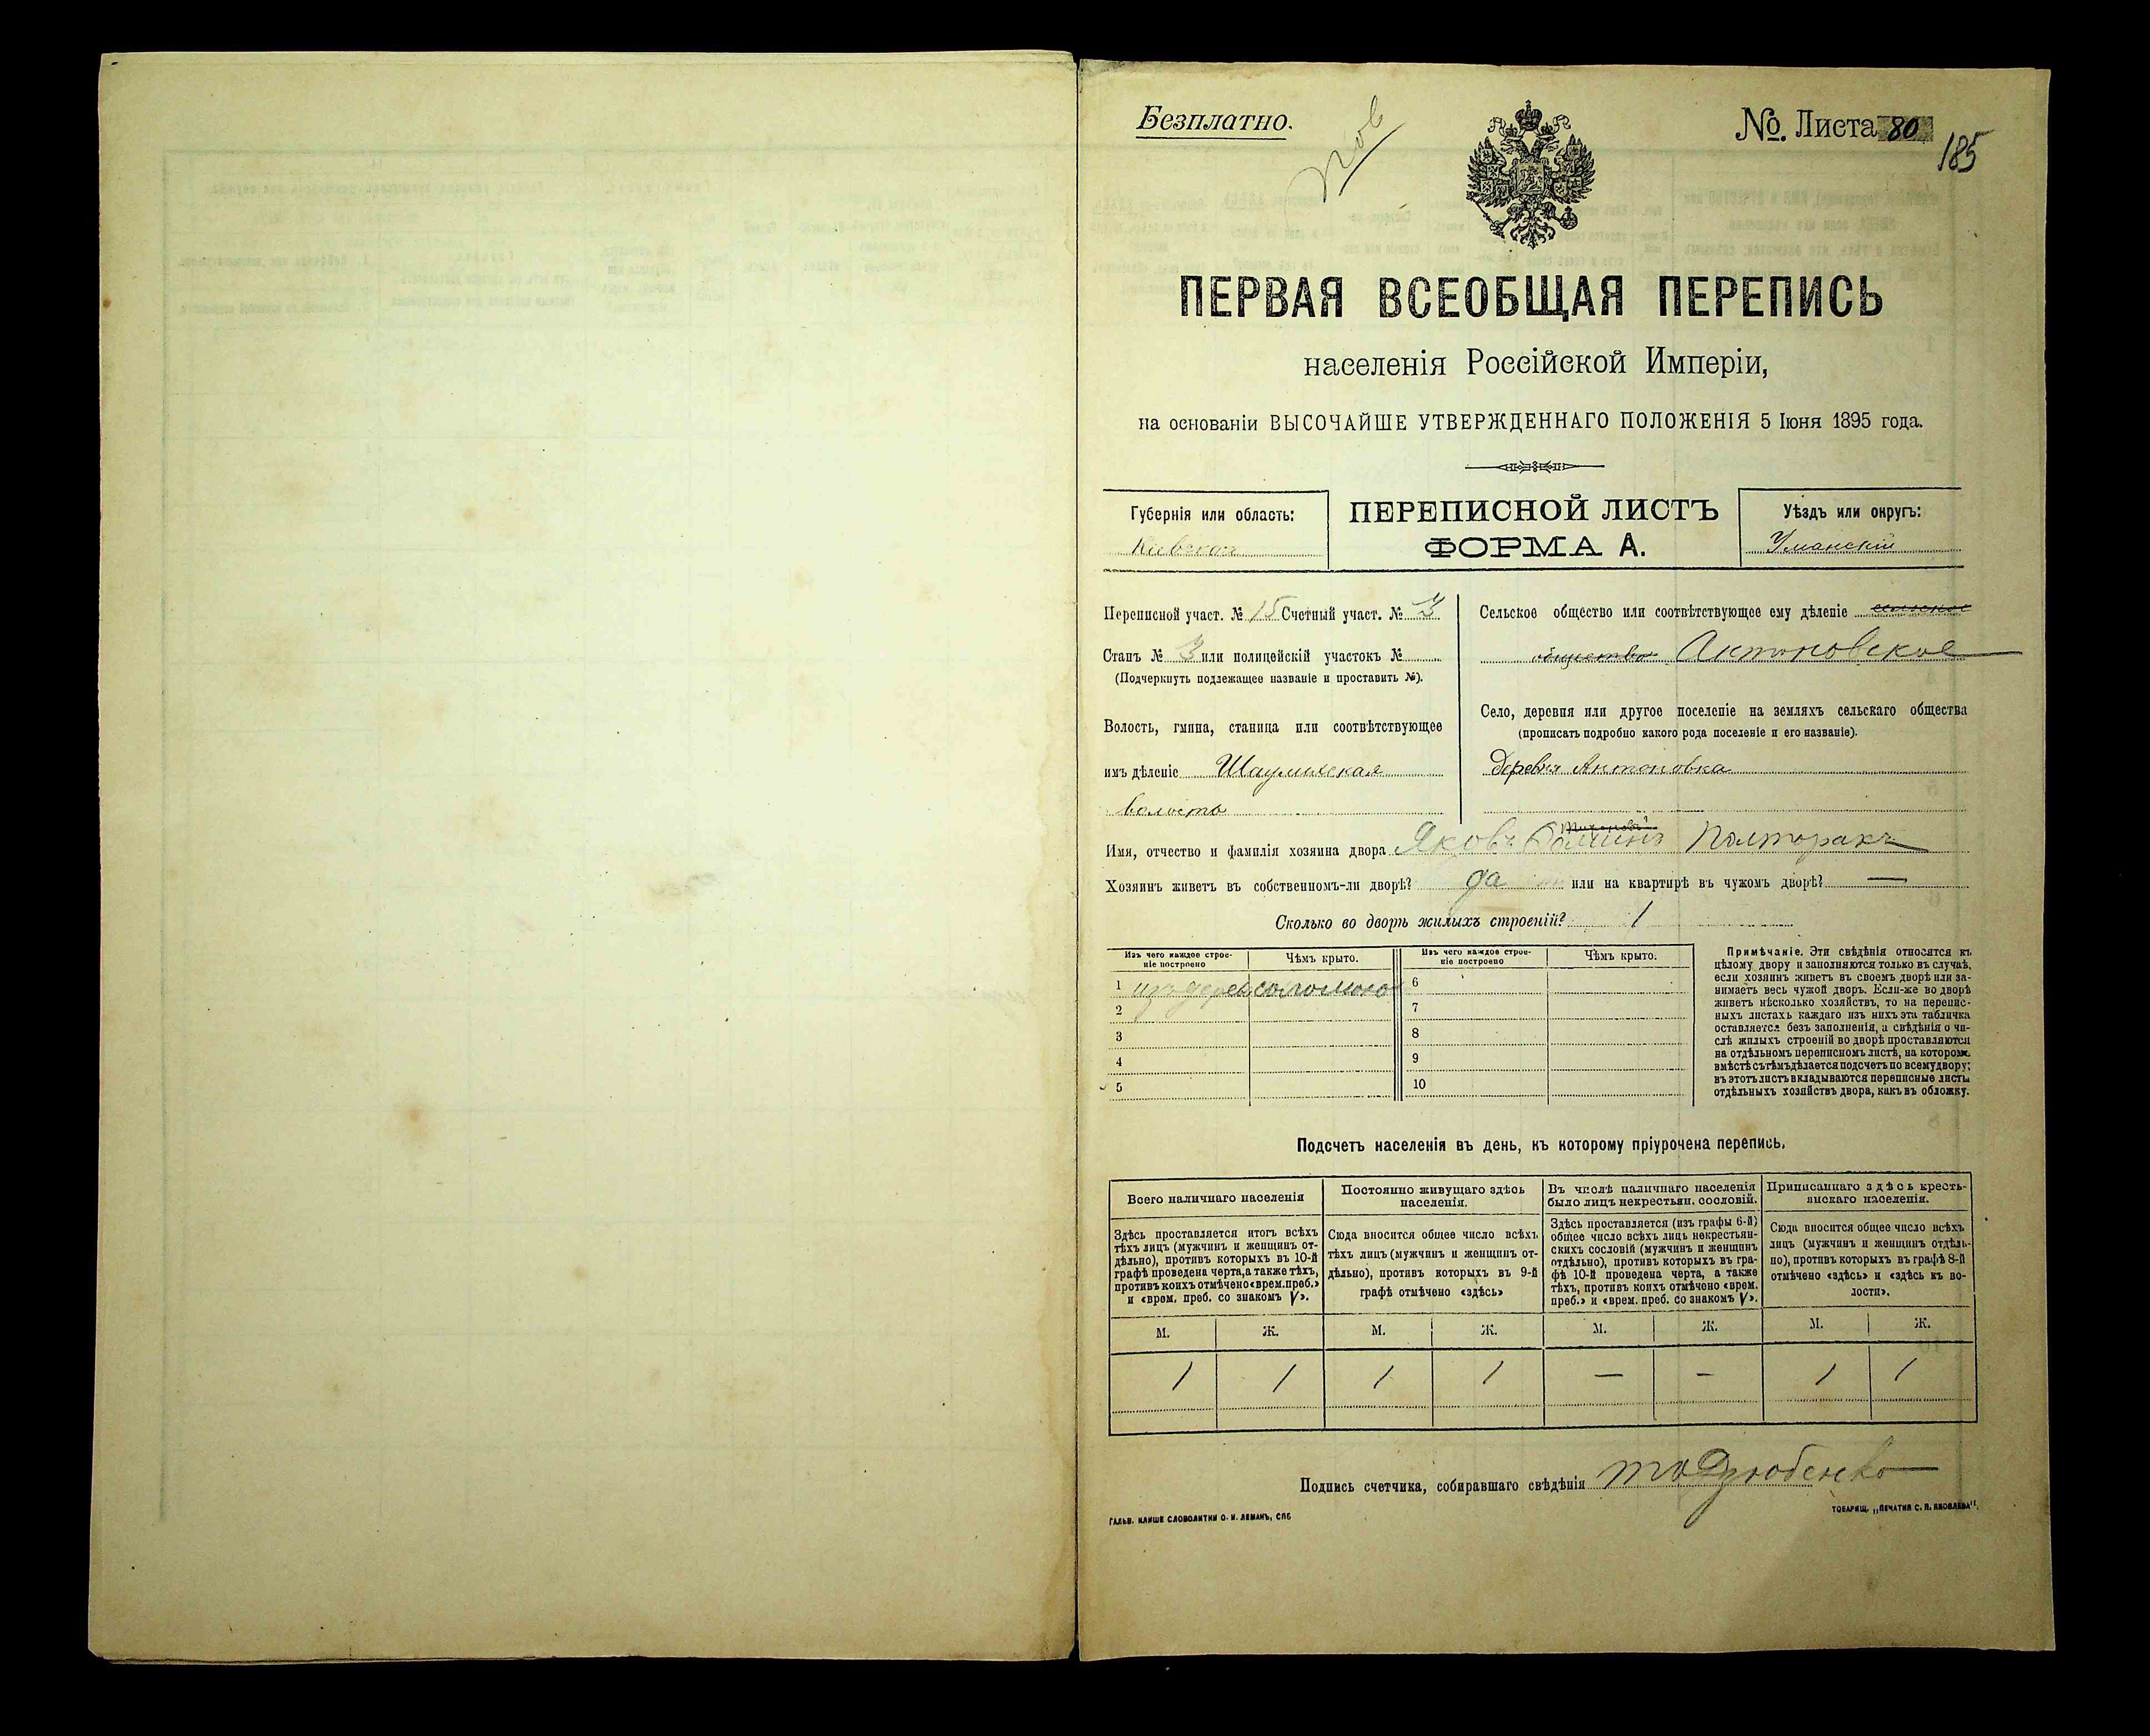 Безплатно.
№ Листа 80
185
ПЕРВАЯ ВСЕОБЩАЯ ПЕРЕПИСЬ
населенія Россійской Имперіи,
на основаніи ВЫСОЧАЙШЕ УТВЕРЖДЕННАГО ПОЛОЖЕНІЯ 5 Іюня 1895 года.
Губернія или область:
Кіевская
ПЕРЕПИСНОЙ ЛИСТЪ
ФОРМА А.
Уѣздъ или округъ:
Уманскій
Переписной участ. № 15 Счетный участ. № 3
Станъ № 3 или полицейскій участокъ №
(Подчеркнуть подлежащее названіе и проставить №).
Волость, гмина, станица или соотвѣтствующее
имъ дѣленіе
волость
Сельское общество или соотвѣтствующее ему дѣленіе сельское
общество Антоновское
Село, деревня или другое поселеніе на земляхъ сельскаго общества
(прописать подробно какого рода поселеніе и его названіе).
деревня Антоновка
Имя, отчество и фамилія хозяина двора Яковъ Полторакъ
Хозяинъ живетъ въ собственномъ-ли дворѣ? да или на квартирѣ въ чужомъ дворѣ? —
Сколько во дворѣ жилыхъ строеній? 1
Изъ чего каждое строе-
ніе построено
Чѣмъ крыто.
Изъ чего каждое строе-
ніе построено
Чѣмъ крыто.
1 изъ дерев соломою 6
2 7
3 8
4 9
5 10
Примѣчаніе. Эти свѣдѣнія относятся къ
цѣлому двору и заполняются только въ случаѣ,
если хозяинъ живетъ въ своемъ дворѣ или за-
нимаетъ весь чужой дворъ. Если-же во дворѣ
живетъ нѣсколько хозяйствъ, то на перепис-
ныхъ листахъ каждаго изъ нихъ эта табличка
оставляется безъ заполненія, а свѣдѣнія о чи-
слѣ жилыхъ строеній во дворѣ проставляются
на отдѣльномъ переписномъ листѣ, на которомъ
вмѣстѣ съ тѣмъ дѣлается подсчетъ по всему двору;
въ этотъ листъ вкладываются переписные листы
отдѣльныхъ хозяйствъ двора, какъ въ обложку.
Подсчетъ населенія въ день, къ которому пріурочена перепись.
Всего наличнаго населенія
Здѣсь проставляется итогъ всѣхъ
тѣхъ лицъ (мужчинъ и женщинъ от-
дѣльно), противъ которыхъ въ 10-й
графѣ проведена черта, а также тѣхъ,
противъ коихъ отмѣчено «врем. преб.»
и «врем. преб. со знакомъ V».
Постоянно живущаго здѣсь
населенія.
Сюда вносится общее число всѣхъ
тѣхъ лицъ (мужчинъ и женщинъ от-
дѣльно), противъ которыхъ въ 9-й
графѣ отмѣчено «здѣсь»
Въ числѣ наличнаго населенія
было лицъ некрестьян. сословій.
Здѣсь проставляется (изъ графы 6-й)
общее число всѣхъ лицъ некрестьян-
скихъ сословій (мужчинъ и женщинъ
отдѣльно), противъ которыхъ въ гра-
фѣ 10-й проведена черта, а также
тѣхъ, противъ коихъ отмѣчено «врем.
преб.» и «врем. преб. со знакомъ V».
Приписаннаго здѣсь кресть-
янскаго населенія.
Сюда вносится общее число всѣхъ
лицъ (мужчинъ и женщинъ отдѣль-
но), противъ которыхъ въ графѣ 8-й
отмѣчено «здѣсь» и «здѣсь въ во-
лости».
М. Ж. М. Ж. М. Ж. М. Ж.
1 1 1 1 — — 1 1
Подпись счетчика, собиравшаго свѣдѣнія
ГАЛЬВ. КЛИШЕ СЛОВОЛИТНИ О. И. ЛЕМАНЪ, СПБ
ТОВАРИЩ. „ПЕЧАТНЯ С. П. ЯКОВЛЕВА".